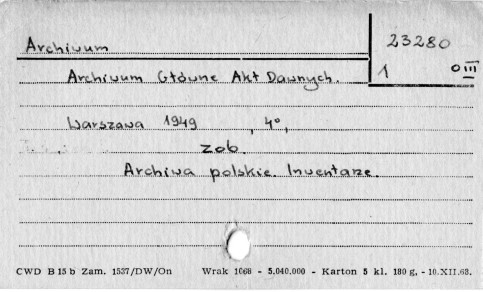 Archivum
23280
1 O III
Archivum Główne Akt Dawnych.
Warszawa 1949 , 4°,
zob.
Archiwa polskie. Inwentarze.
CWD B 15 b Zam. 1537/DW/On Wrak 1068 - 5.040.000 - Karton 5 kl. 180 g. - 10.XII.68.